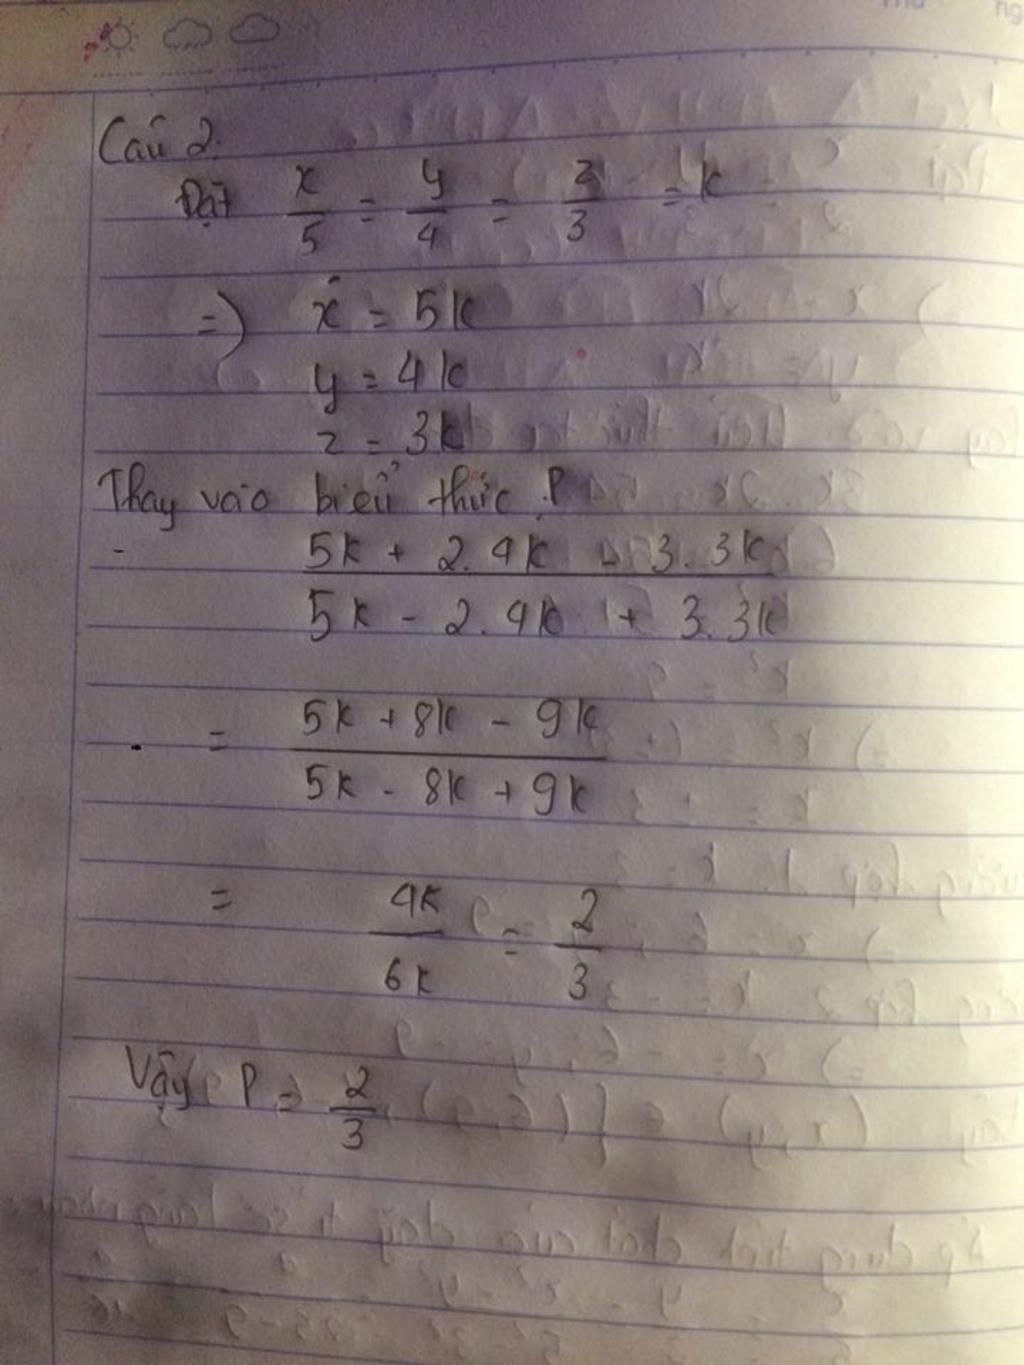 Câu 2.
Đặt x/5 = y/4 = z/3 = k
=) x = 5k
y = 4k
z = 3k
Thay vào biểu thức P
5k + 2.4k - 3.3k
5k - 2.4k + 3.3k
= 5k + 8k - 9k
5k - 8k + 9k
= 4k/6k = 2/3
Vậy P = 2/3